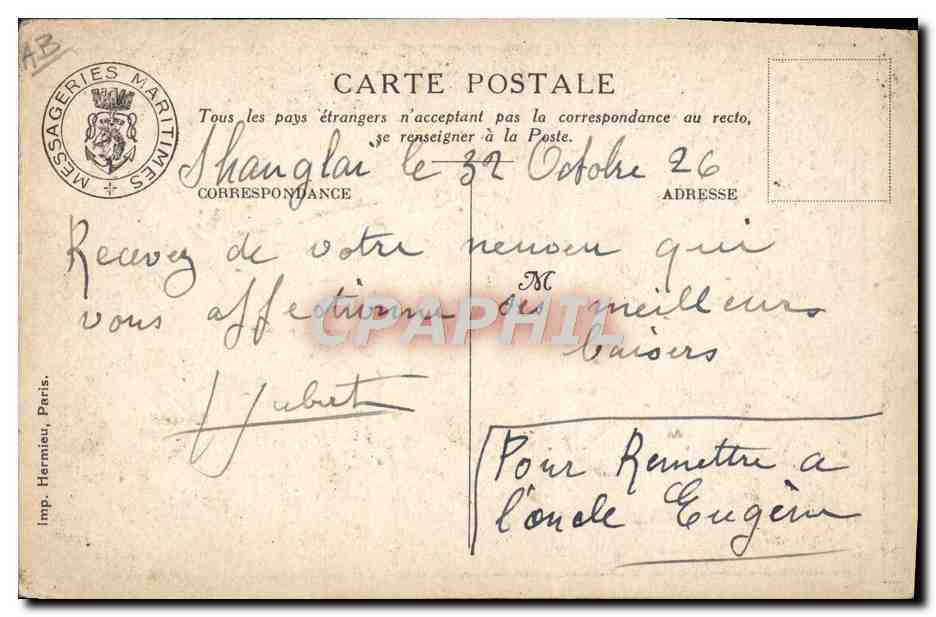 AB
MESSAGERIES MARITIMES
CARTE POSTALE
Tous les pays étrangers n'acceptant pas la correspondance au recto,
se renseigner à la Poste.
Shanghaï le 32 Octobre 26
CORRESPONDANCE
ADRESSE
Recevez de votre neuveu qui
M
vous affectionne des meilleurs
baisers
Hubert
Pour Remettre a
l'oncle Eugène
Imp. Hermieu, Paris.
CPAPHIL